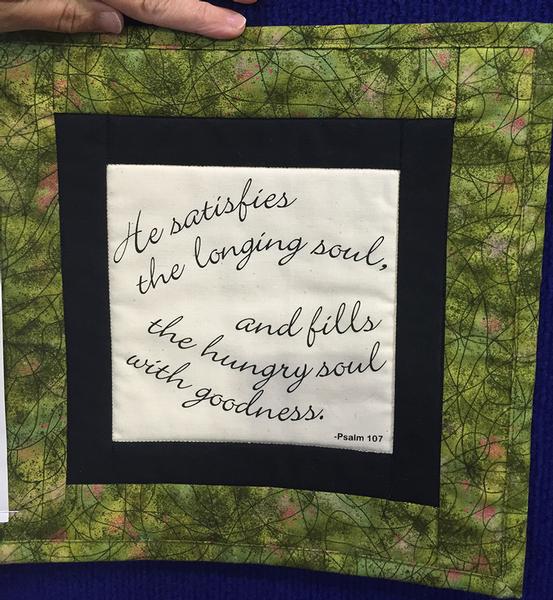 He satisfies
the longing soul,
and fills
the hungry soul
with goodness.
-Psalm 107